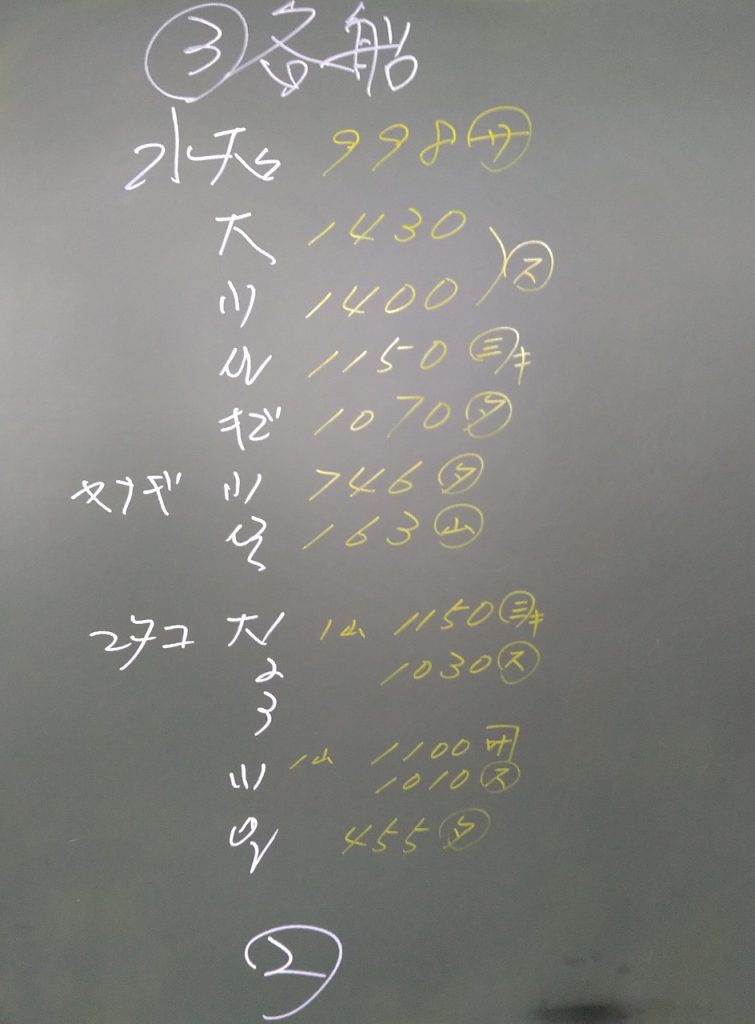 ③各船
水 大 998 サ
大 1430
小 1400 ス
1150 三キ
キズ 1070 タ
ヤナギ 小 746 タ
163 山
マダコ 大1 1山 1150 三キ
2 1030 ス
3
小 1山 1100 叶
1010 ス
455 タ
②